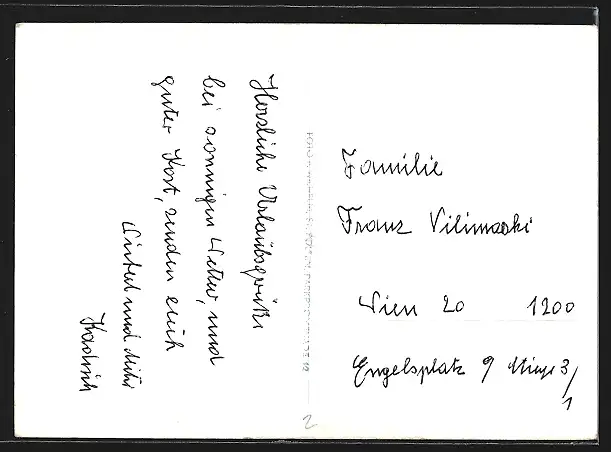 Herzliche Urlaubsgrüße
bei sonnigem Wetter, und
guter Kost, senden euch
und
Familie
Franz Vilimaski
Wien 20 1200
Engelsplatz 9 Stiege 3/
1
2